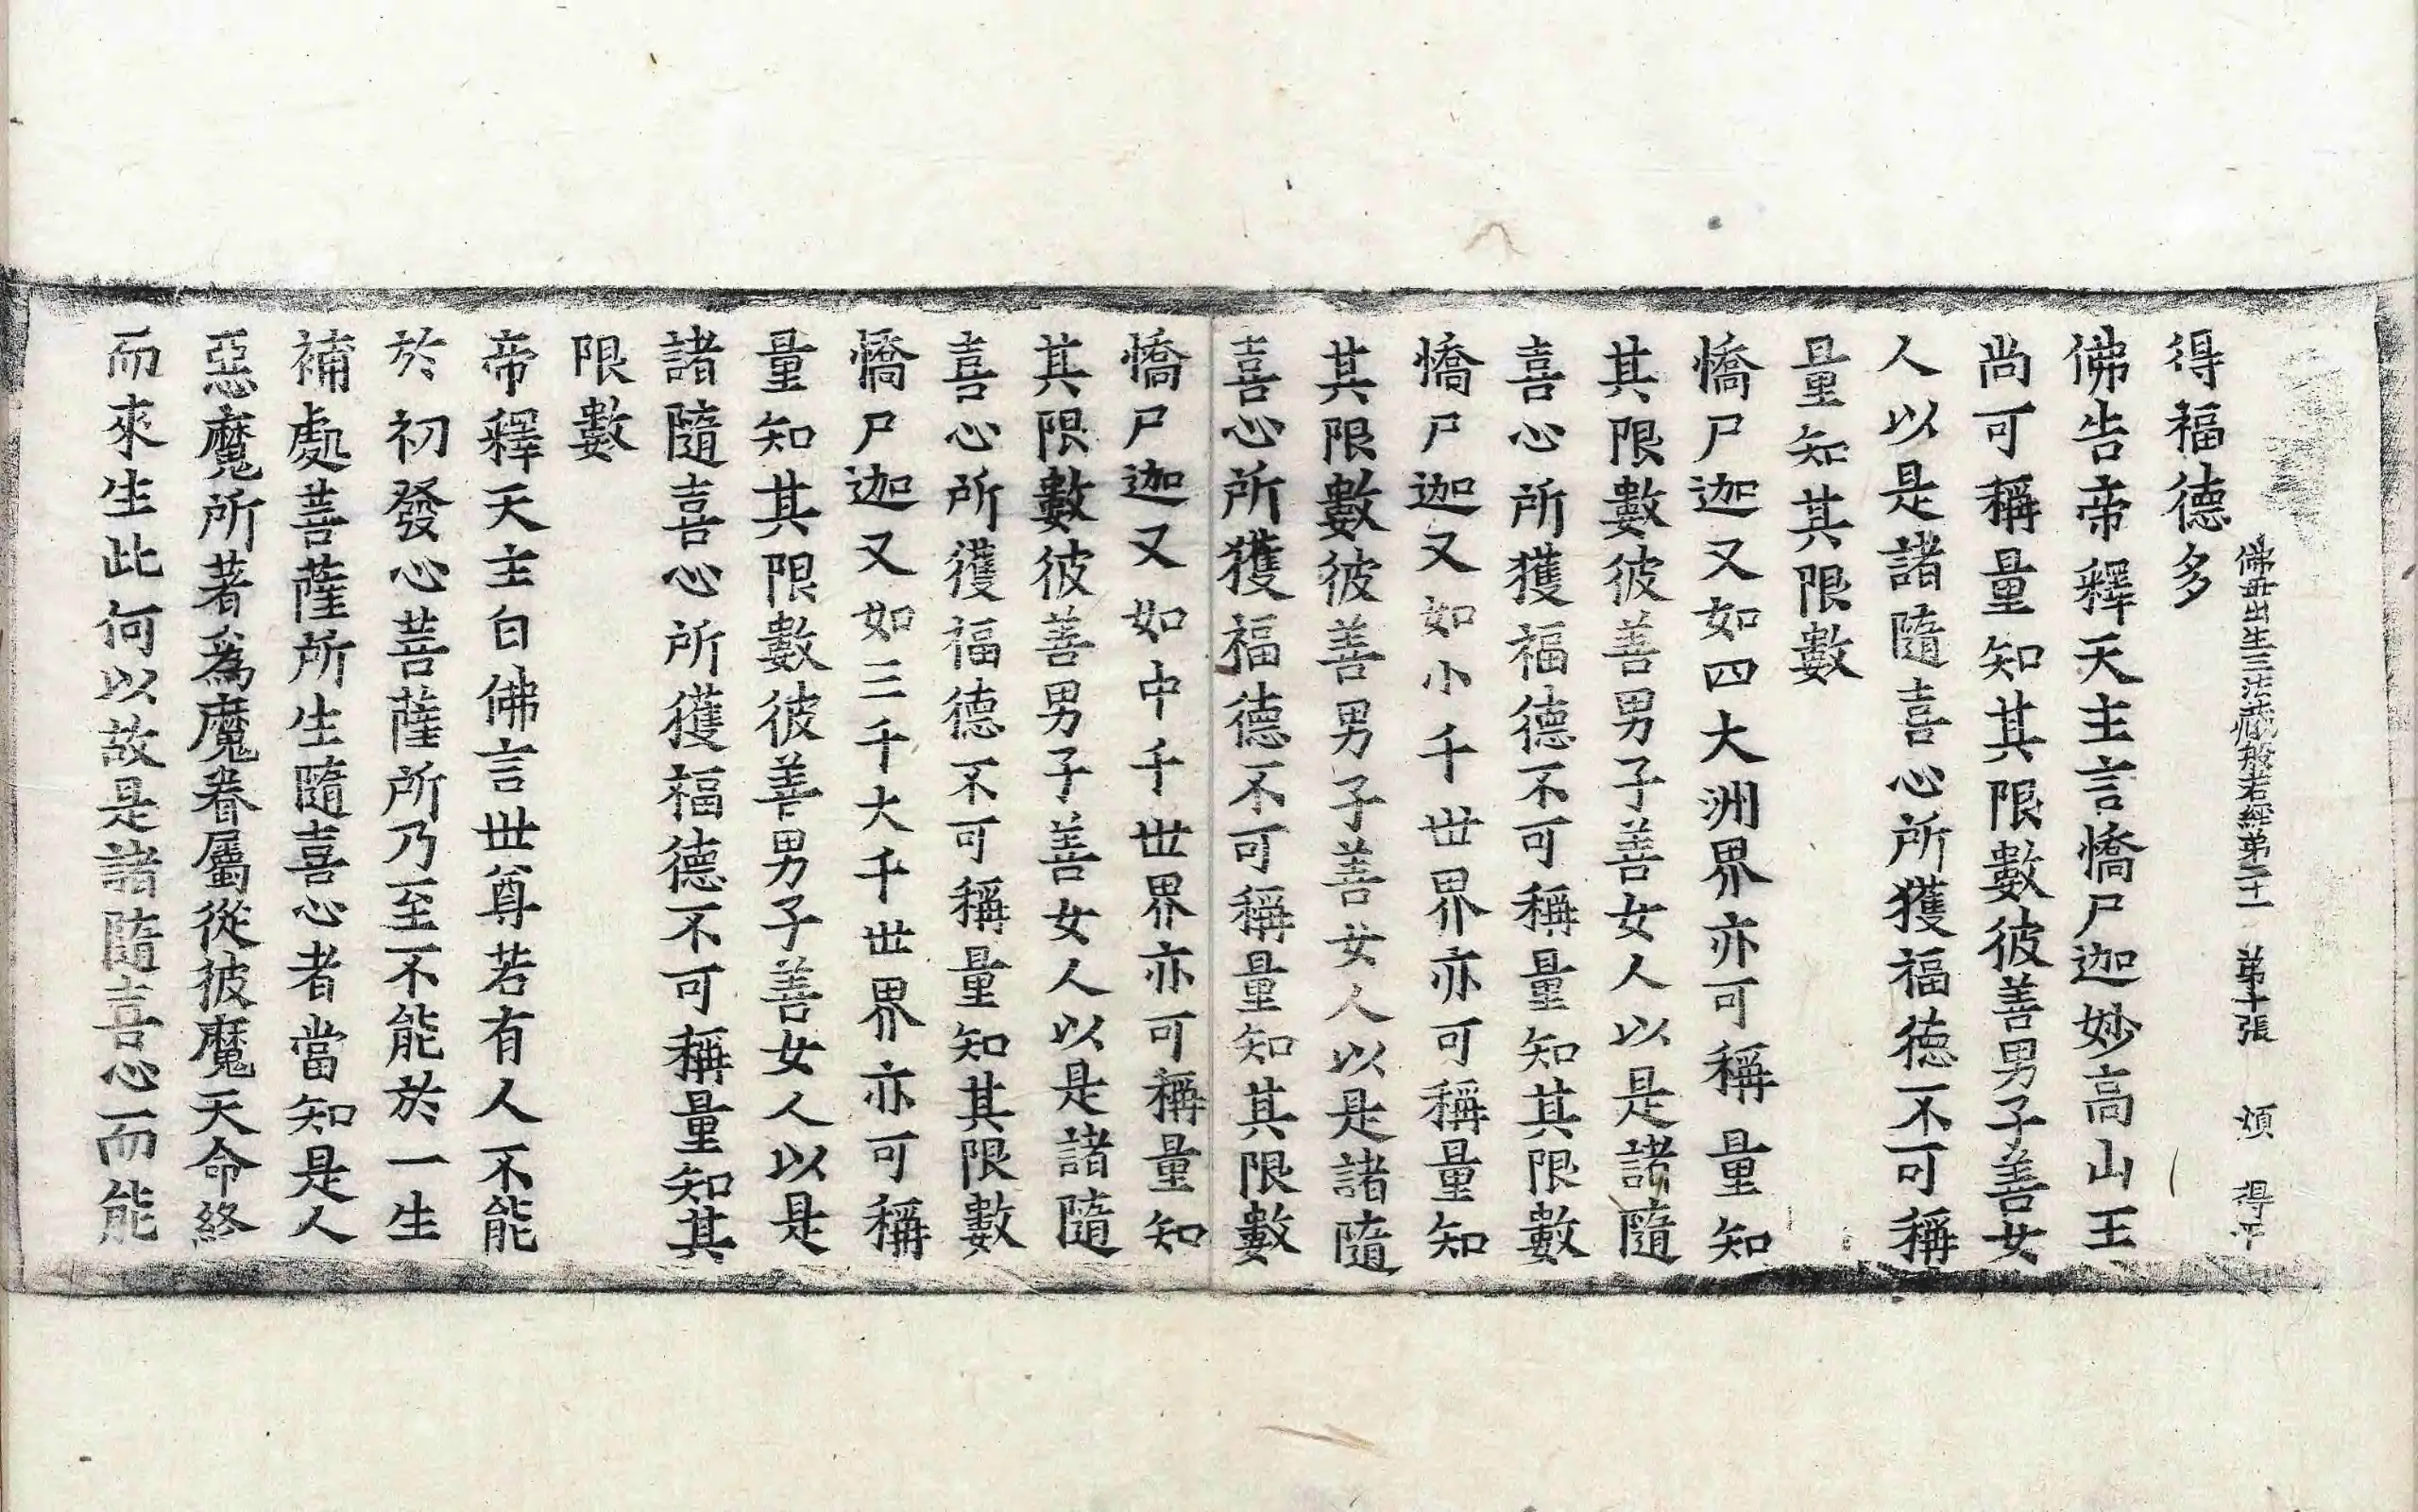 佛母出生三法藏般若經第二十一 第十張 煩 得平
得福德多
佛告帝釋天主言憍尸迦妙高山王
尚可稱量知其限數彼善男子善女
人以是諸隨喜心所獲福德不可稱
量知其限數
憍尸迦又如四大洲界亦可稱量知
其限數彼善男子善女人以是諸隨
喜心所獲福德不可稱量知其限數
憍尸迦又如小千世界亦可稱量知
其限數彼善男子善女人以是諸隨
喜心所獲福德不可稱量知其限數
憍尸迦又如中千世界亦可稱量知
其限數彼善男子善女人以是諸隨
喜心所獲福德不可稱量知其限數
憍尸迦又如三千大千世界亦可稱
量知其限數彼善男子善女人以是
諸隨喜心所獲福德不可稱量知其
限數
帝釋天主白佛言世尊若有人不能
於初發心菩薩所乃至不能於一生
補處菩薩所生隨喜心者當知是人
惡魔所著爲魔眷屬從彼魔天命終
而來生此何以故是諸隨喜心而能